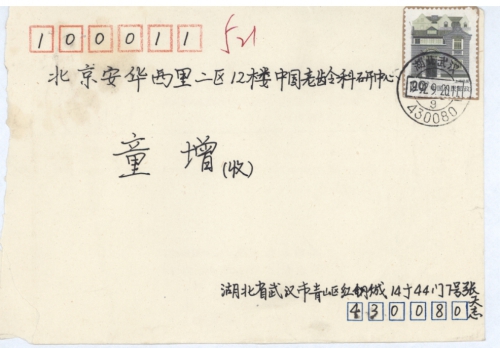 100011 521
北京安华西里二区12楼中国老龄科研中心
童增(收)
1992.9.20.17
9
430080
湖北省武汉市青山区红钢城14寸44门7号张
430080